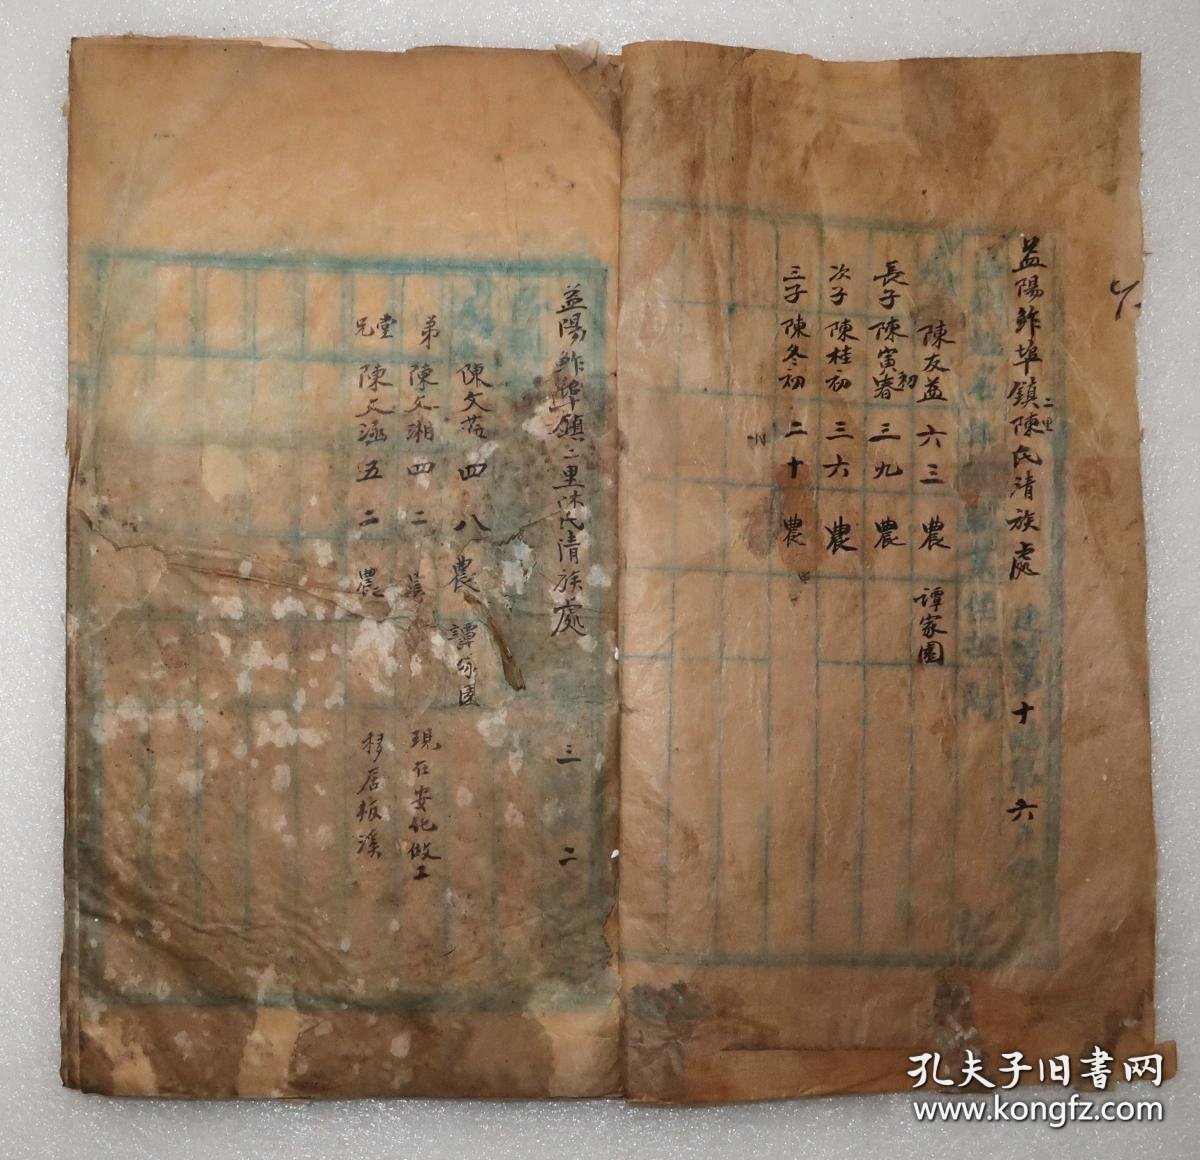 益陽鮓埠鎮二里陳氏清族處 十 六
陳友益 六三 農 谭家園
長子 陳寅春初 三九 農
次子 陳桂初 三六 農
三子 陳冬初 二十 農
益陽鮓埠鎮二里陳氏清族處 三 二
陳文 四八 農 譚家園
弟 陳文湘 四二 農 現在安化做工
堂兄 陳文涵 五二 農 移居板溪
孔夫子旧书网
www.kongfz.com